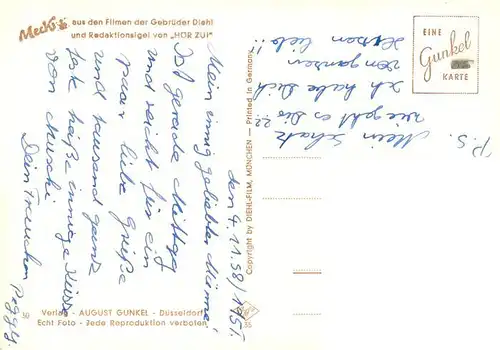 Mecki
aus den Filmen der Gebrüder Diehl
und Redaktionsigel von „HÖR ZU!"
EINE
Gunkel
KARTE
den 4.11.58/1951.
Mein innig geliebter Männe!
Ist gerade Mittag
und reicht für ein
paar liebe Grüße
und tausend ganz
feste heiße innige Küsse
von deinem
Dein Frauchen
Peggy.
P.S.
Mein Schatz
wie geht es Dir??
ich habe Dich
von ganzem
Herzen lieb!!
Copyright by DIEHL-FILM, MÜNCHEN — Printed in Germany
50
Verlag - AUGUST GUNKEL - Düsseldorf
Echt Foto - Jede Reproduktion verboten
35